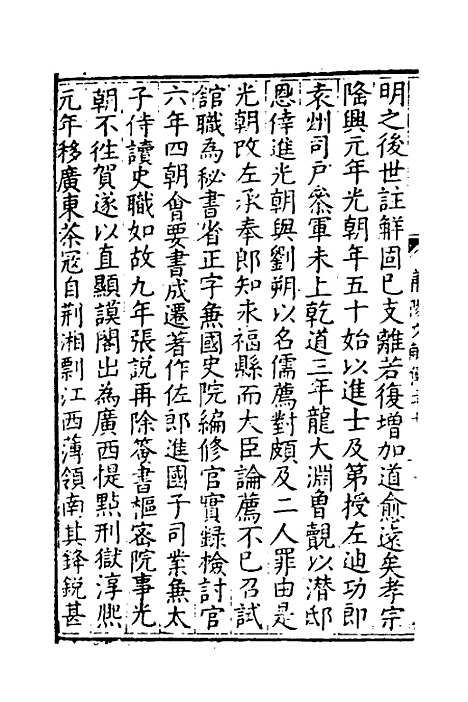 明之後世註解固已支離若復增加道愈遠矣孝宗
隆興元年光朝年五十始以進士及第授左迪功郎
袁州司戶叅軍未上乾道三年龍大淵曾覿以潛邸
恩倖進光朝與劉朔以名儒薦對頗及二人罪由是
光朝改左承奉郎知永福縣而大臣論薦不已召試
館職為秘書省正字兼國史院編修官實録檢討官
六年四朝會要書成遷著作佐郎進國子司業兼太
子侍讀史職如故九年張說再除簽書樞密院事光
朝不往賀遂以直顯謨閣出為廣西提點刑獄淳熙
元年移廣東茶寇自荆湘剽江西薄嶺南其鋒銳甚